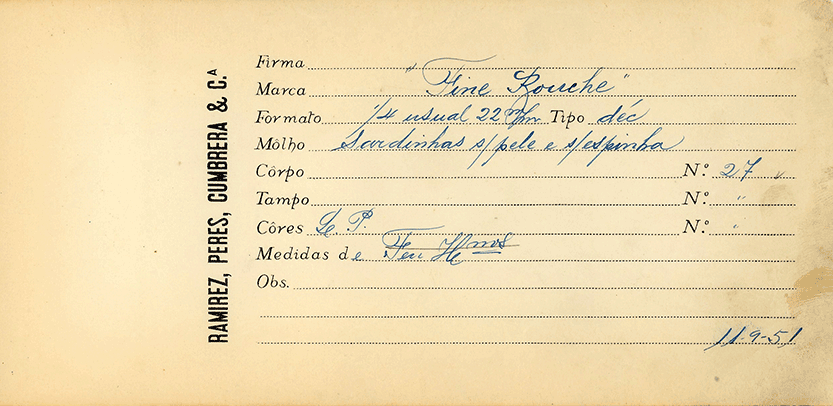 RAMIREZ, PERES, CUMBRERA & C.ª
Firma
Marca "Fine Bouche"
Formato 1/4 usual 22 m/m Tipo déc
Môlho Sardinhas s/pele e s/espinha
Côrpo N.º 27 "
Tampo N.º "
Côres P. N.º "
Medidas de Feu H.mos
Obs.
11-9-51